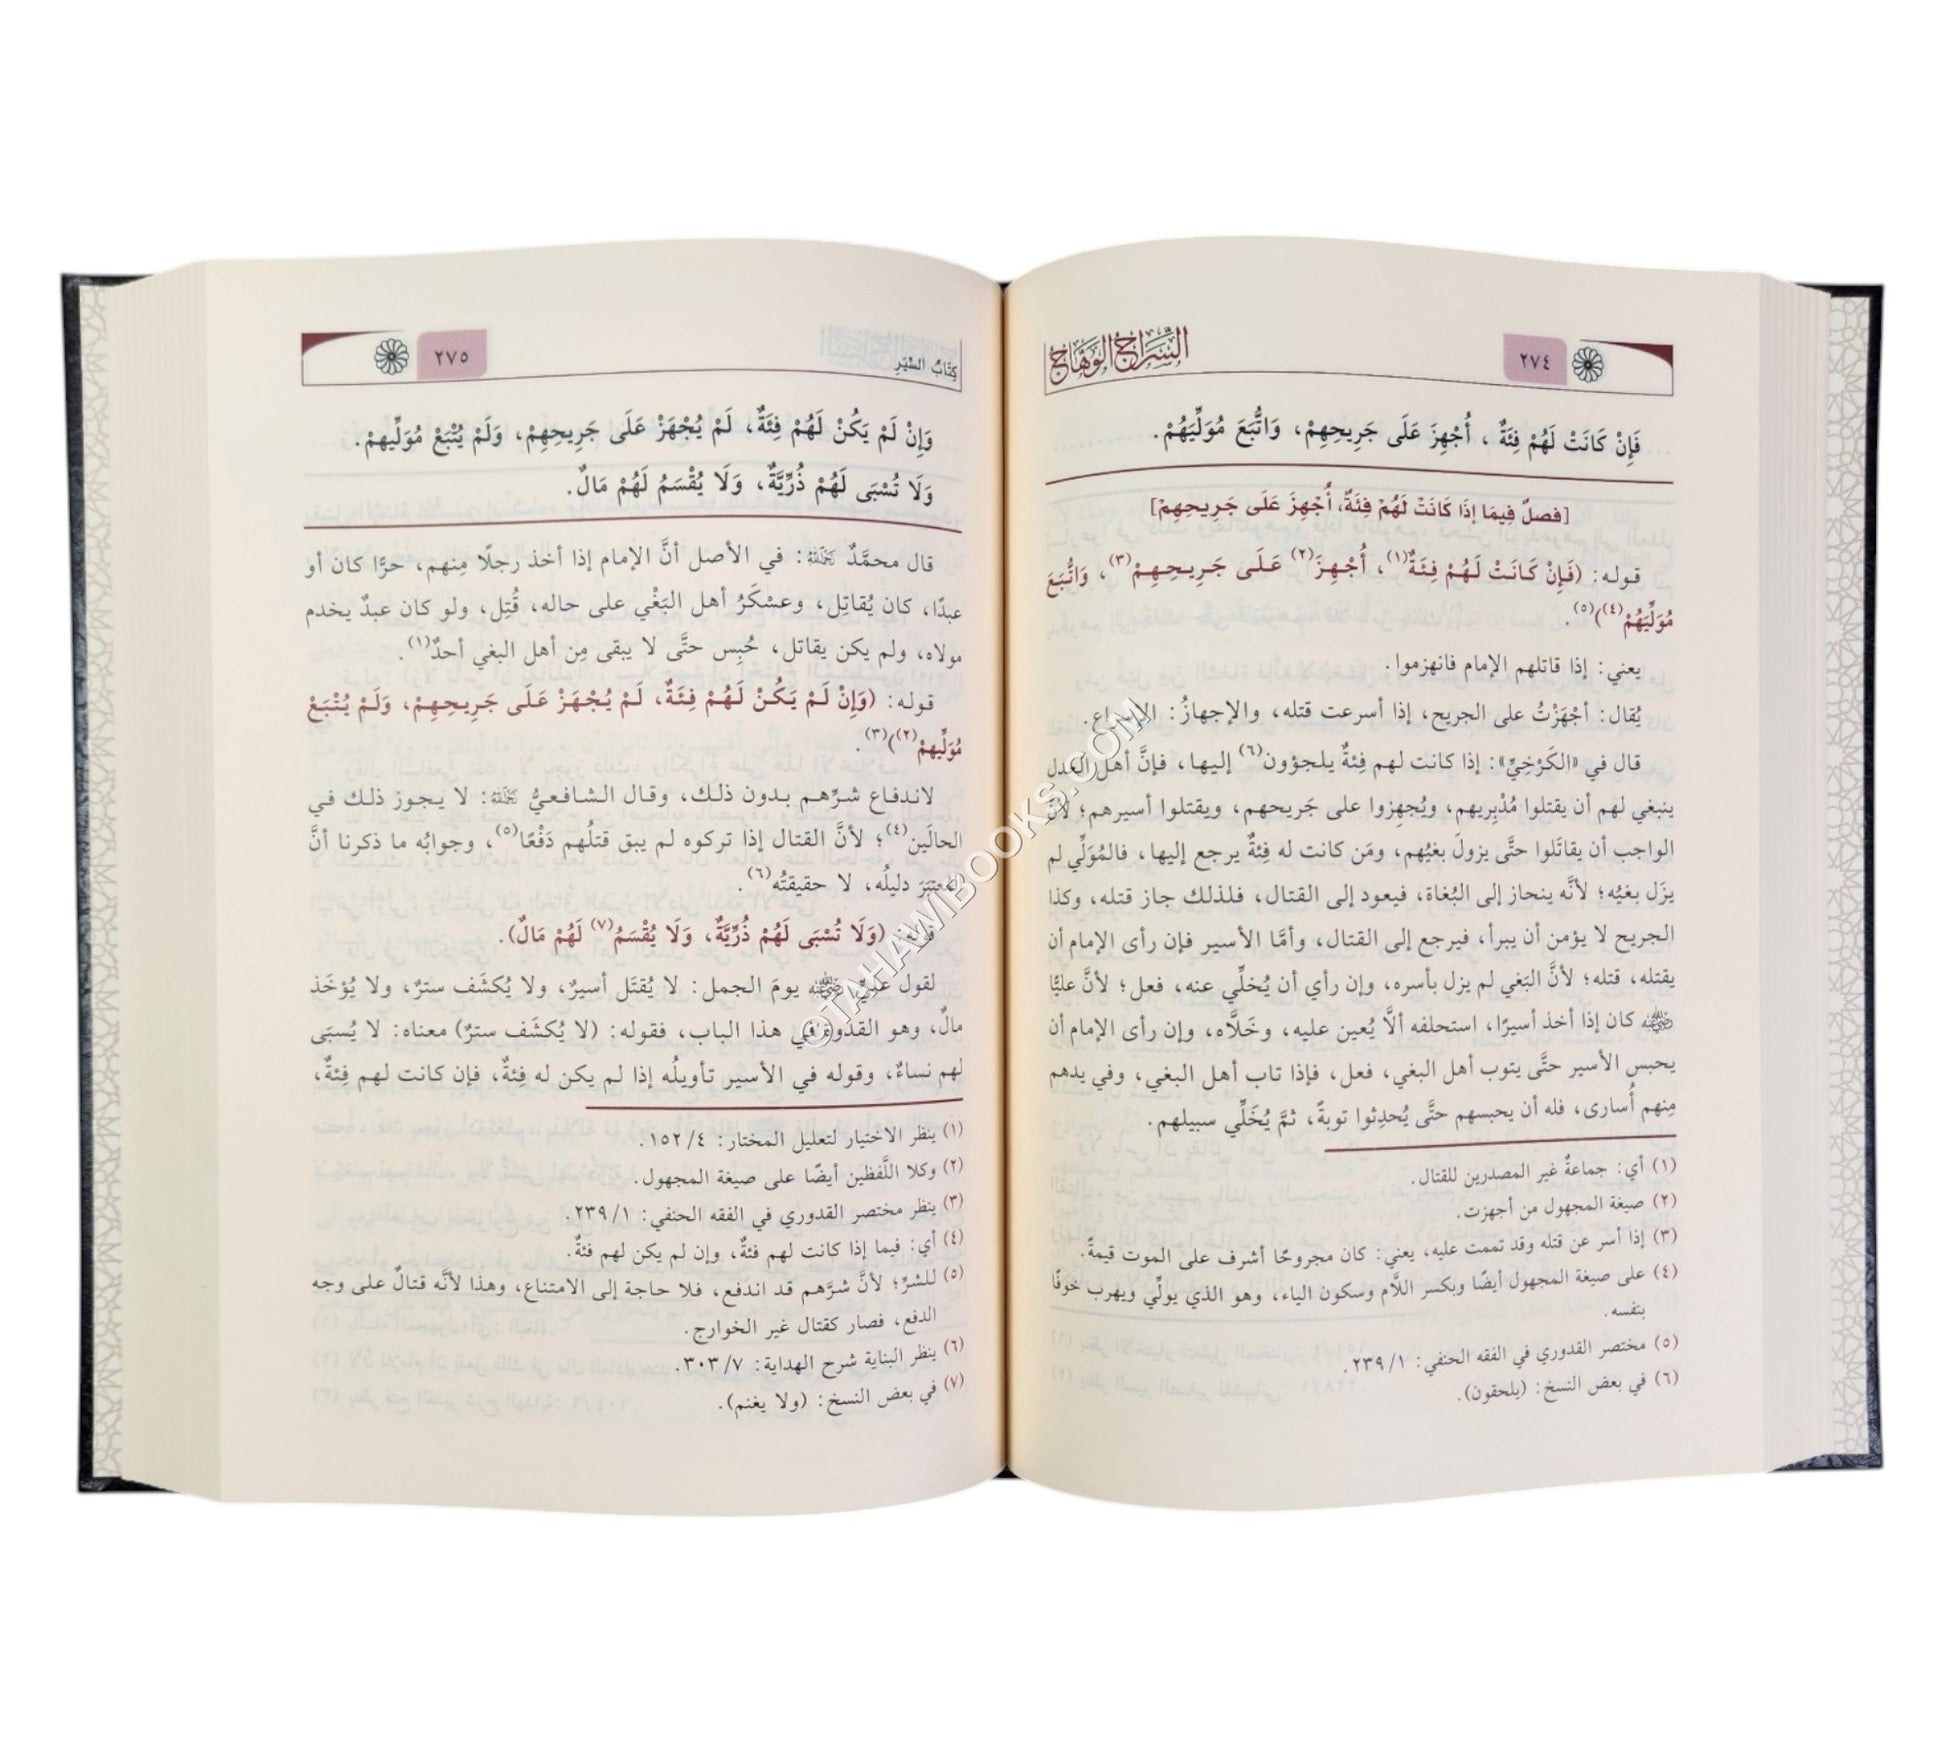 ٢٧٤
السراج الوهاج
فَإِنْ كَانَتْ لَهُمْ فِئَةٌ ، أُجْهِزَ عَلَى جَرِيحِهِمْ، وَاتُّبِعَ مُوَلِّيَهُمْ.
[فصلٌ فِيمَا إِذَا كَانَتْ لَهُمْ فِئَةٌ، أُجْهِزَ عَلَى جَرِيحِهِمْ]
قوله: (فَإِنْ كَانَتْ لَهُمْ فِئَةٌ(١)، أُجْهِزَ(٢) عَلَى جَرِيحِهِمْ(٣)، وَاتُّبِعَ
مُوَلِّيَهُمْ(٤))(٥).
يعني: إذا قاتلهم الإمام فانهزموا.
يُقال: أجْهَزْتُ على الجريح، إذا أسرعت قتله، والإجهازُ: الإسراع.
قال في «الكَرْخِيِّ»: إذا كانت لهم فِئةٌ يلجؤون(٦) إليها، فإنَّ أهل العدل
ينبغي لهم أن يقتلوا مُدْبِريهم، ويُجهِزوا على جَريحهم، ويقتلوا أسيرهم؛ لأنَّ
الواجب أن يقاتَلوا حتَّى يزولَ بغيُهم، ومَن كانت له فِئةٌ يرجع إليها، فالمُوَلِّي لم
يزَل بغيُه؛ لأنَّه ينحاز إلى البُغاة، فيعود إلى القتال، فلذلك جاز قتله، وكذا
الجريح لا يؤمن أن يبرأ، فيرجع إلى القتال، وأمَّا الأسير فإن رأى الإمام أن
يقتله، قتله؛ لأنَّ البَغي لم يزل بأسره، وإن رأي أن يُخلِّي عنه، فعل؛ لأنَّ عليًّا
رضي الله عنه كان إذا أخذ أسيرًا، استحلفه ألَّا يُعين عليه، وخَلَّاه، وإن رأى الإمام أن
يحبس الأسير حتَّى يتوب أهل البغي، فعل، فإذا تاب أهل البغي، وفي يدهم
مِنهم أُسارى، فله أن يحبسهم حتَّى يُحدِثوا توبةً، ثمَّ يُخَلِّي سبيلهم.
(١) أي: جماعةٌ غير المصدرين للقتال.
(٢) صيغة المجهول من أجهزت.
(٣) إذا أسر عن قتله وقد تممت عليه، يعني: كان مجروحًا أشرف على الموت قيمةً.
(٤) على صيغة المجهول أيضًا وبكسر اللَّام وسكون الياء، وهو الذي يولِّي ويهرب خوفًا
بنفسه.
(٥) مختصر القدوري في الفقه الحنفي: ١/ ٢٣٩.
(٦) في بعض النسخ: (يلحقون).
كِتَابُ السِّيَرِ
٢٧٥
وَإِنْ لَمْ يَكُنْ لَهُمْ فِئَةٌ، لَمْ يُجْهَزْ عَلَى جَرِيحِهِمْ، وَلَمْ يُتْبَعْ مُوَلِّيهِمْ.
وَلَا تُسْبَى لَهُمْ ذُرِّيَّةٌ، وَلَا يُقْسَمُ لَهُمْ مَالٌ.
قال محمَّدٌ رحمه الله: في الأصل أنَّ الإمام إذا أخذ رجلًا مِنهم، حرًّا كان أو
عبدًا، كان يُقاتِل، وعسْكَرُ أهل البَغْي على حاله، قُتِل، ولو كان عبدٌ يخدم
مولاه، ولم يكن يقاتل، حُبِس حتَّى لا يبقى مِن أهل البغي أحدٌ(١).
قوله: (وَإِنْ لَمْ يَكُنْ لَهُمْ فِئَةٌ، لَمْ يُجْهَزْ عَلَى جَرِيحِهِمْ، وَلَمْ يُتْبَعْ
مُوَلِّيهِمْ(٢))(٣).
لاندفاع شرِّهم بدون ذلك، وقال الشافعيُّ رحمه الله: لا يجوز ذلك في
الحالَين(٤)؛ لأنَّ القتال إذا تركوه لم يبق قتلُهم دَفْعًا(٥)، وجوابُه ما ذكرنا أنَّ
المعتبَرَ دليلُه، لا حقيقتُه(٦).
قوله: (وَلَا تُسْبَى لَهُمْ ذُرِّيَّةٌ، وَلَا يُقْسَمُ(٧) لَهُمْ مَالٌ).
لقول عليٍّ رضي الله عنه يومَ الجمل: لا يُقتَل أسيرٌ، ولا يُكشَف سترٌ، ولا يُؤخَذ
مالٌ، وهو القدوة في هذا الباب، فقوله: (لا يُكشَف سترٌ) معناه: لا يُسبَى
لهم نساءٌ، وقوله في الأسير تأويلُه إذا لم يكن له فِئةٌ، فإن كانت لهم فِئةٌ،
(١) ينظر الاختيار لتعليل المختار: ٤/ ١٥٢.
(٢) وكلا اللَّفظين أيضًا على صيغة المجهول.
(٣) ينظر مختصر القدوري في الفقه الحنفي: ١/ ٢٣٩.
(٤) أي: فيما إذا كانت لهم فئةٌ، وإن لم يكن لهم فئةٌ.
(٥) للشرِّ؛ لأنَّ شرَّهم قد اندفع، فلا حاجة إلى الامتناع، وهذا لأنَّه قتالٌ على وجه
الدفع، فصار كقتال غير الخوارج.
(٦) ينظر البناية شرح الهداية: ٧/ ٣٠٣.
(٧) في بعض النسخ: (ولا يغنم).
©TAHAWIBOOKS.COM